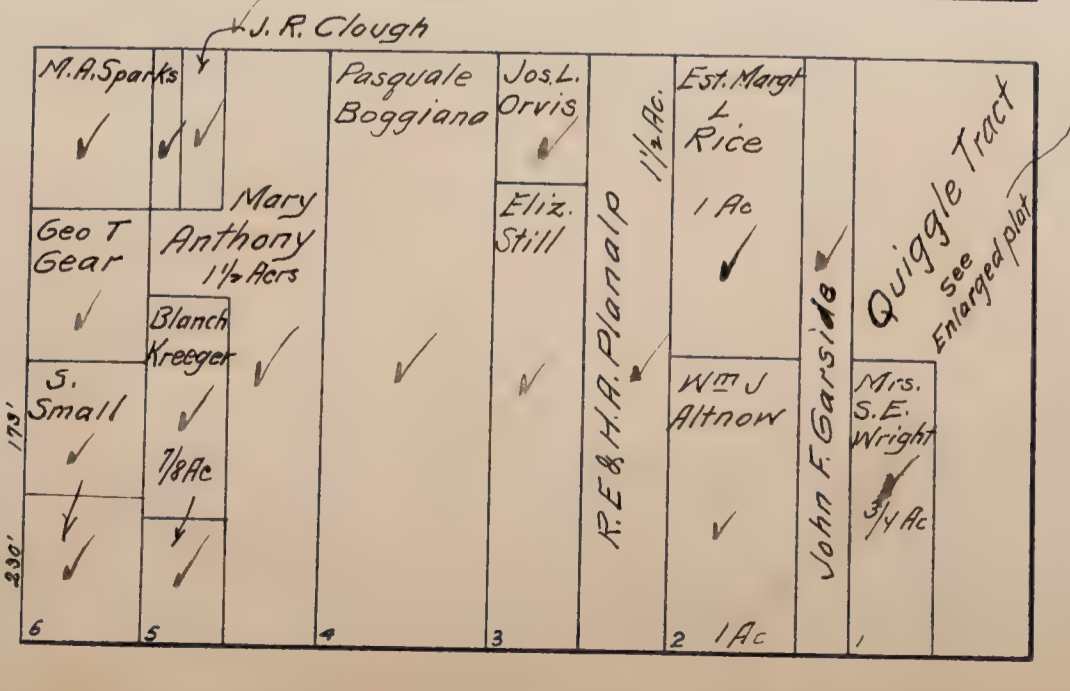 J. R. Clough
M.A. Sparks
Geo T
Gear
S.
Small
173'
230'
6
Mary
Anthony
1½ Acrs
Blanch
Kreeger
7/8 Ac
5
Pasquale
Boggiana
4
Jos. L.
Orvis
Eliz.
Still
3
R.E & H.A. Planalp 1½ Ac.
Est. Margt
L.
Rice
1 Ac
Wm J
Altnow
1 Ac
2
John F. Garside
Quiggle Tract
See
Enlarged plat
Mrs.
S.E.
Wright
3/4 Ac
1